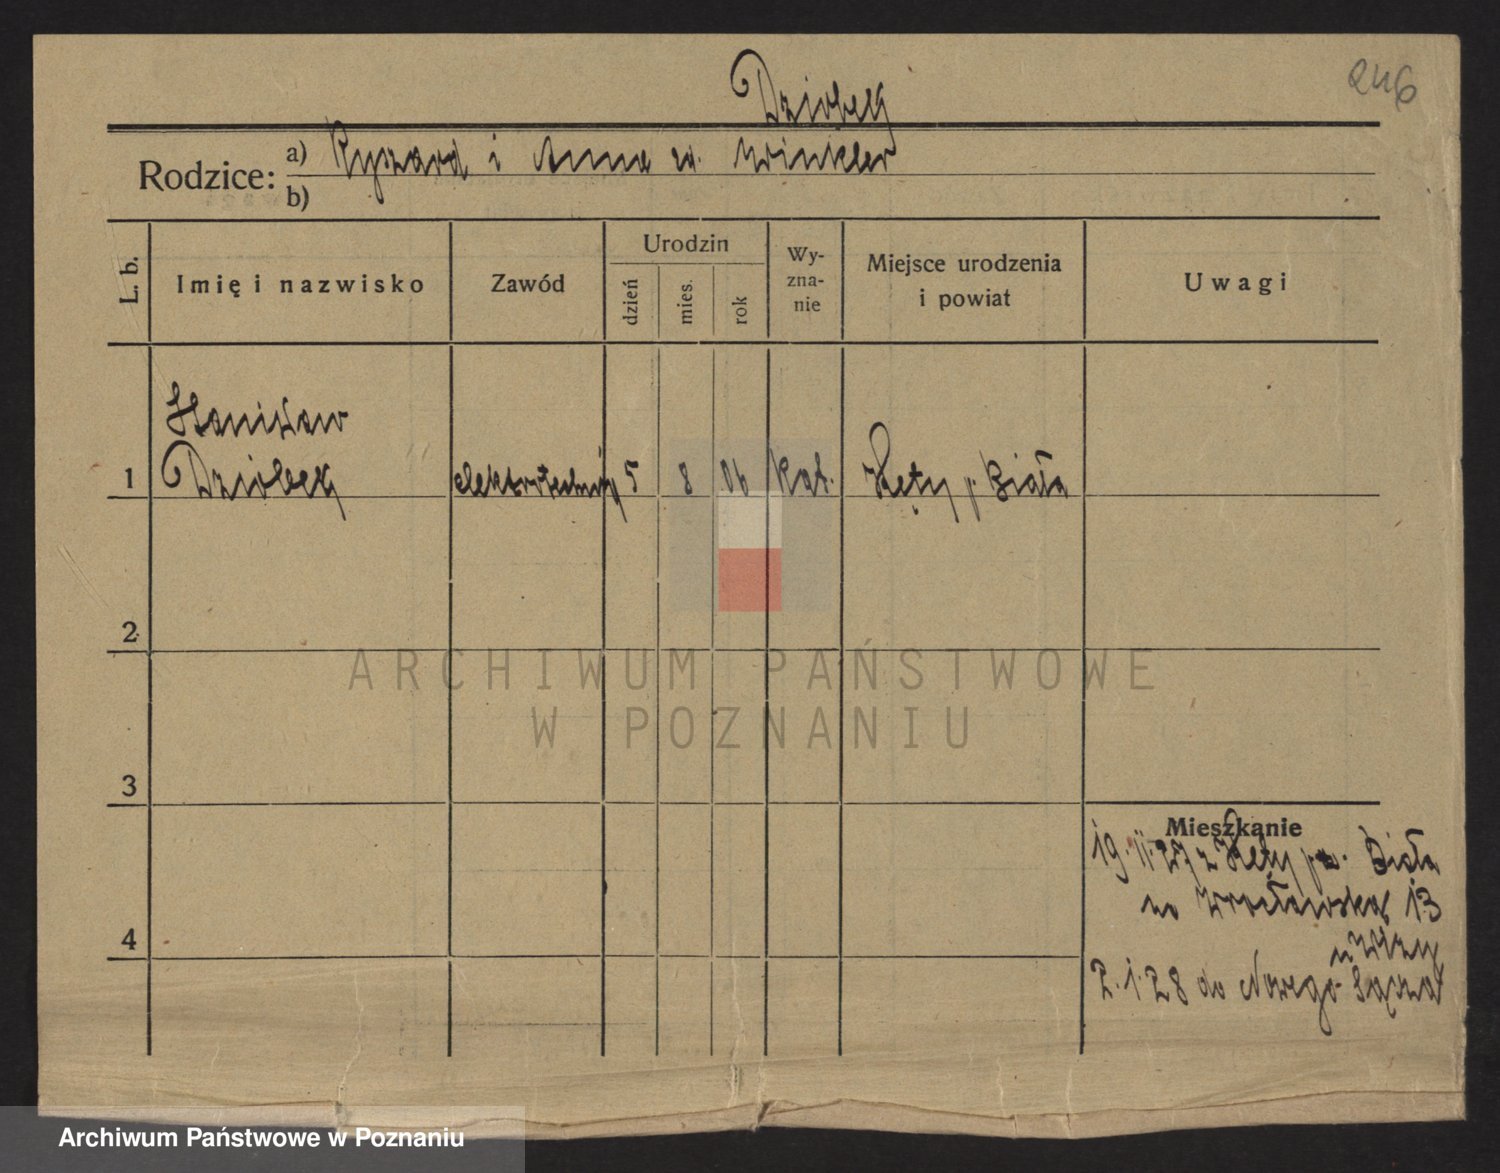 246
Dziobek
Rodzice: a) Ryszard i Anna z d. Winkler
b)
L. b. Imię i nazwisko Zawód Urodzin dzień mies. rok Wyznanie Miejsce urodzenia i powiat Uwagi
Stanisław
1 Dziobek elektrotechnik 5 8 06 kat. Kęty p. Biała
2
3
4
Mieszkanie
19.11.27 z Kęty pow. Biała
na Wrocławską 13
u
2.1.28 do Nowego Sącza
ARCHIWUM PAŃSTWOWE
W POZNANIU
Archiwum Państwowe w Poznaniu